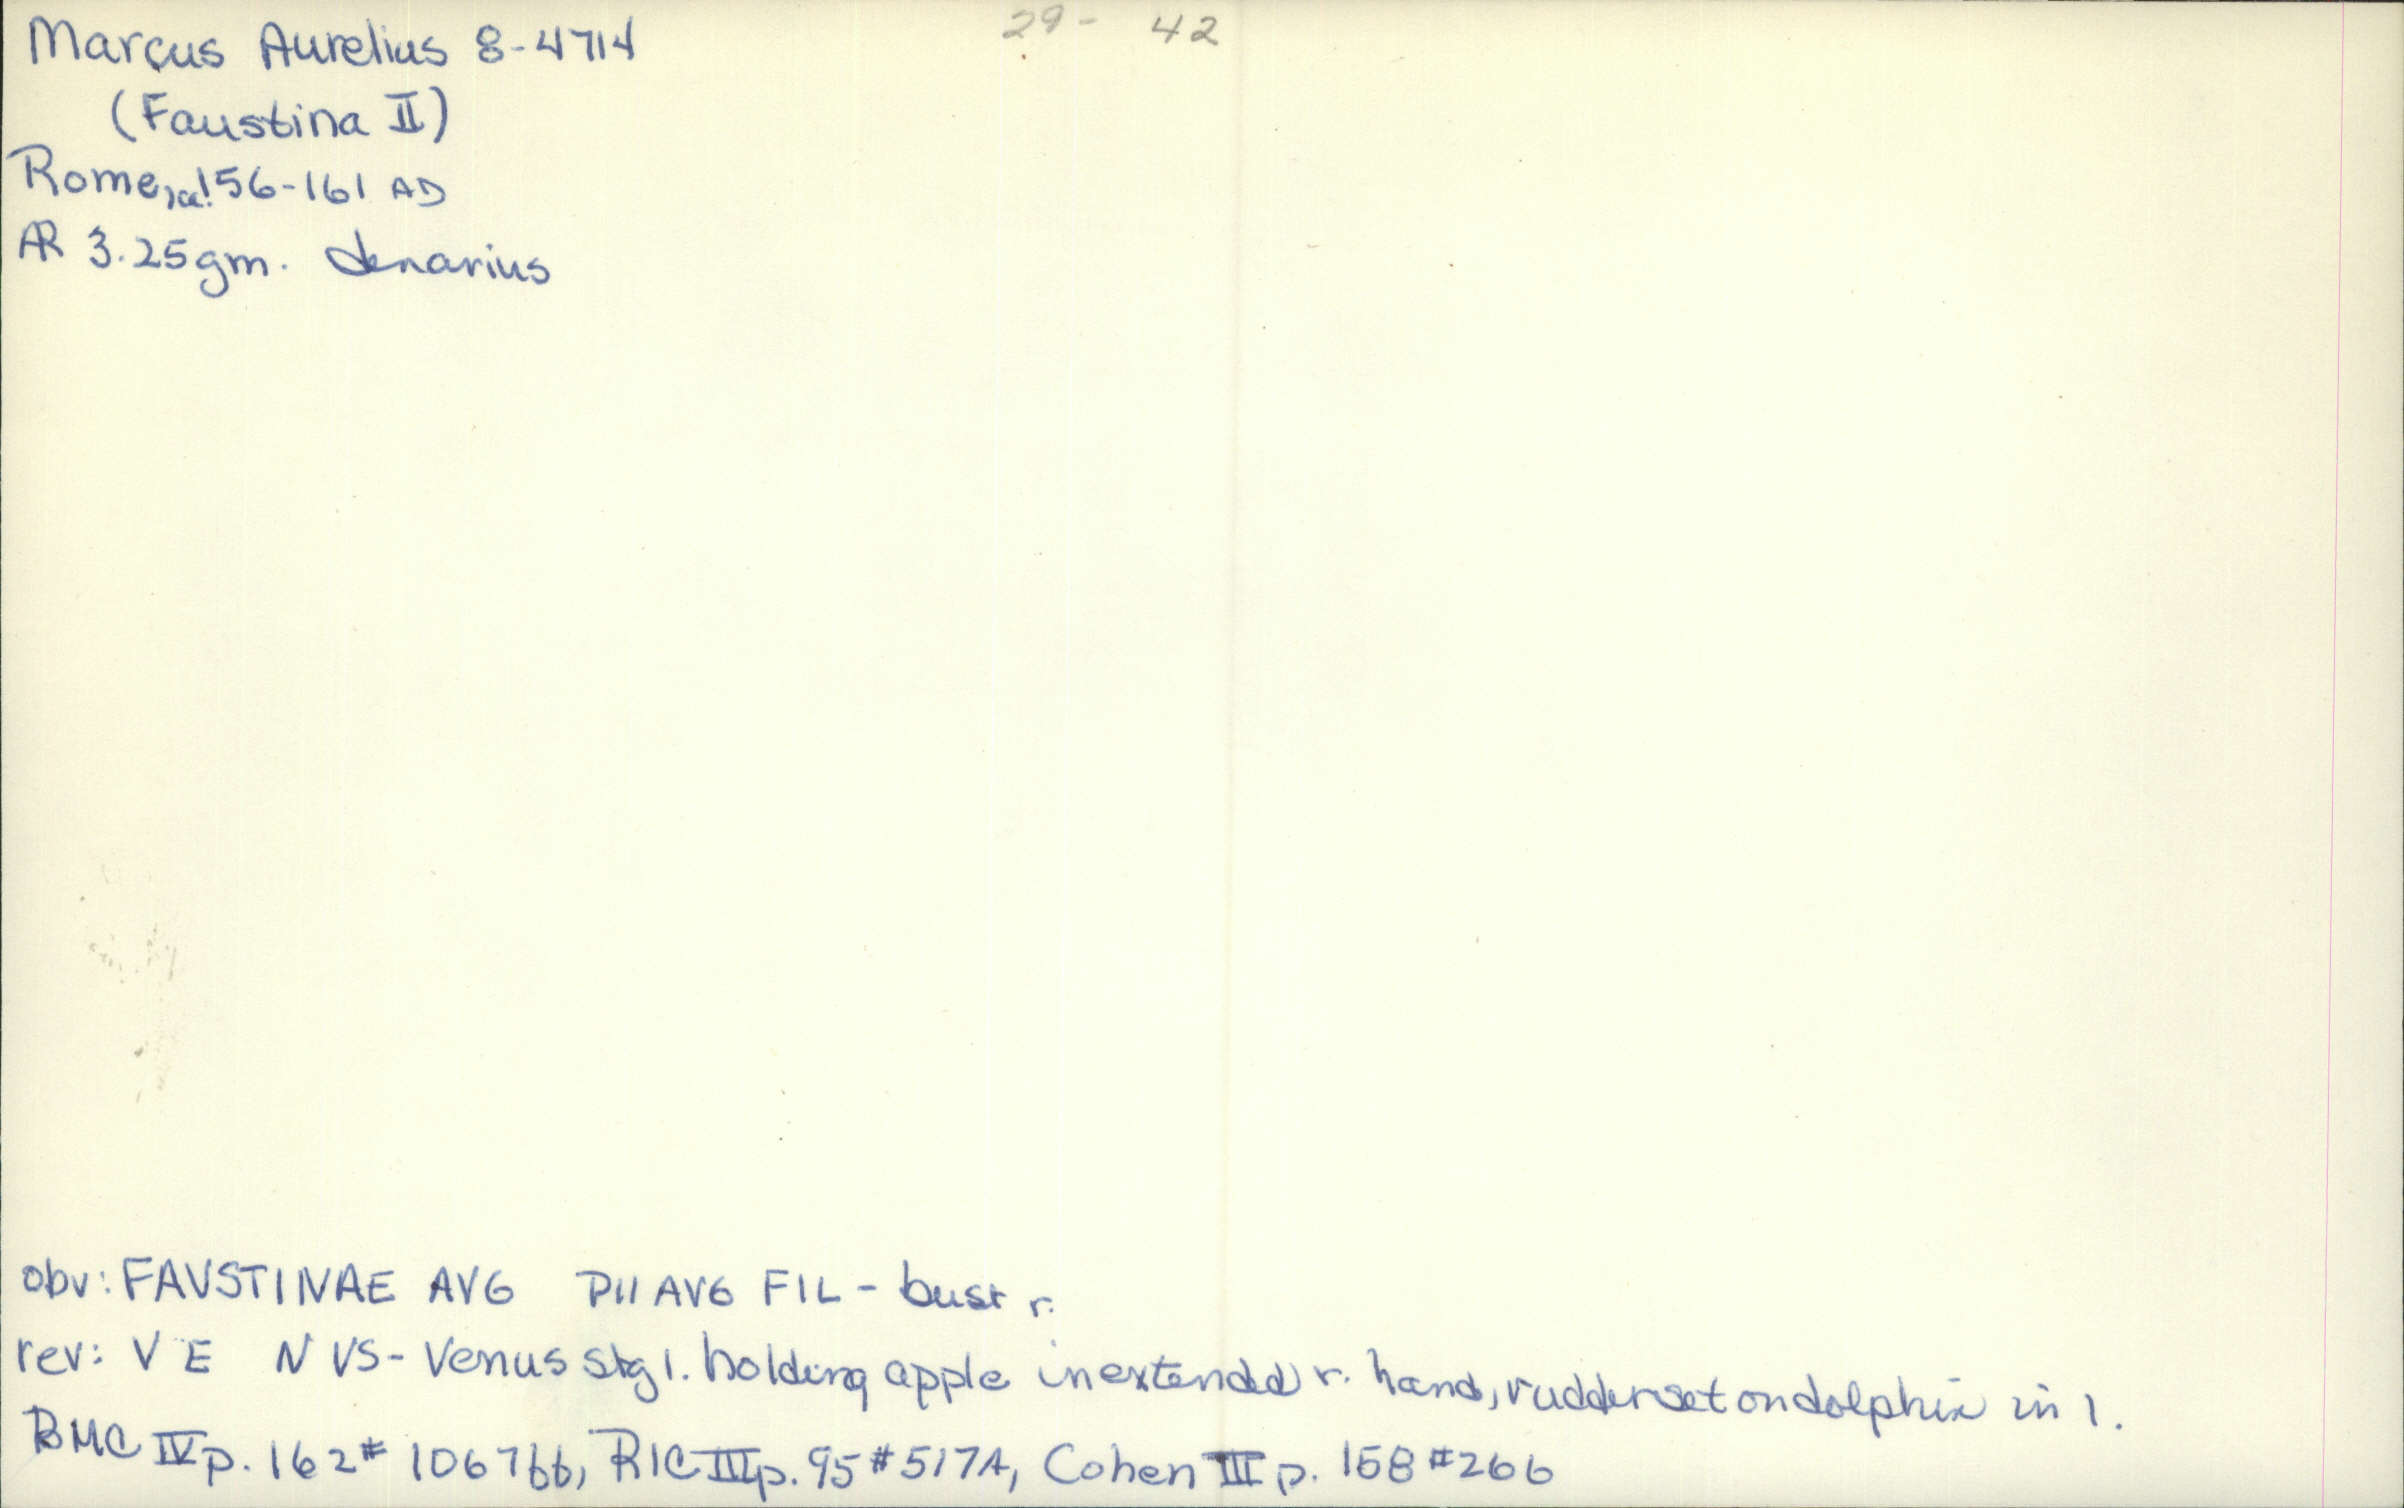 Marcus Aurelius 8-4714
29- 42
(Faustina II)
Rome, ca. 156-161 AD
AR 3.25gm. denarius
obv: FAVSTINAE AVG PII AVG FIL - bust r.
rev: V E N VS - Venus stg l. holding apple in extended r. hand, rudder set on dolphin in l.
BMC IV p. 162 # 1067ff, RIC III p. 95 # 517A, Cohen III p. 158 # 266